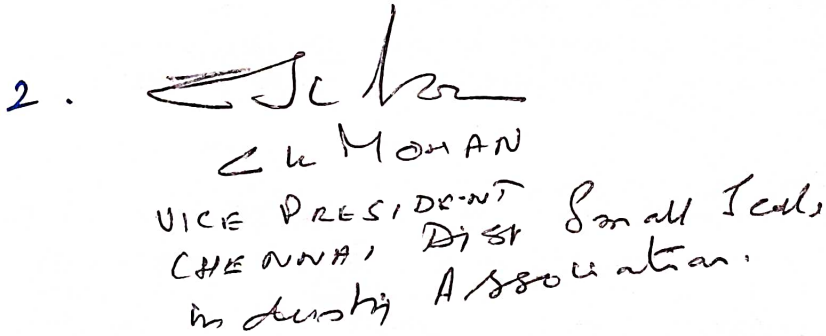 2.
C K MOHAN
VICE PRESIDENT
CHENNAI Dist Small Scale
industry Association.